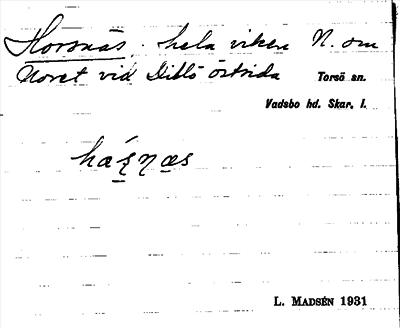 Horsnäs, hela viken N. om
Noret vid Dillö östsida Torsö sn.
Vadsbo hd. Skar. l.
hásnæs
L. MADSÉN 1931